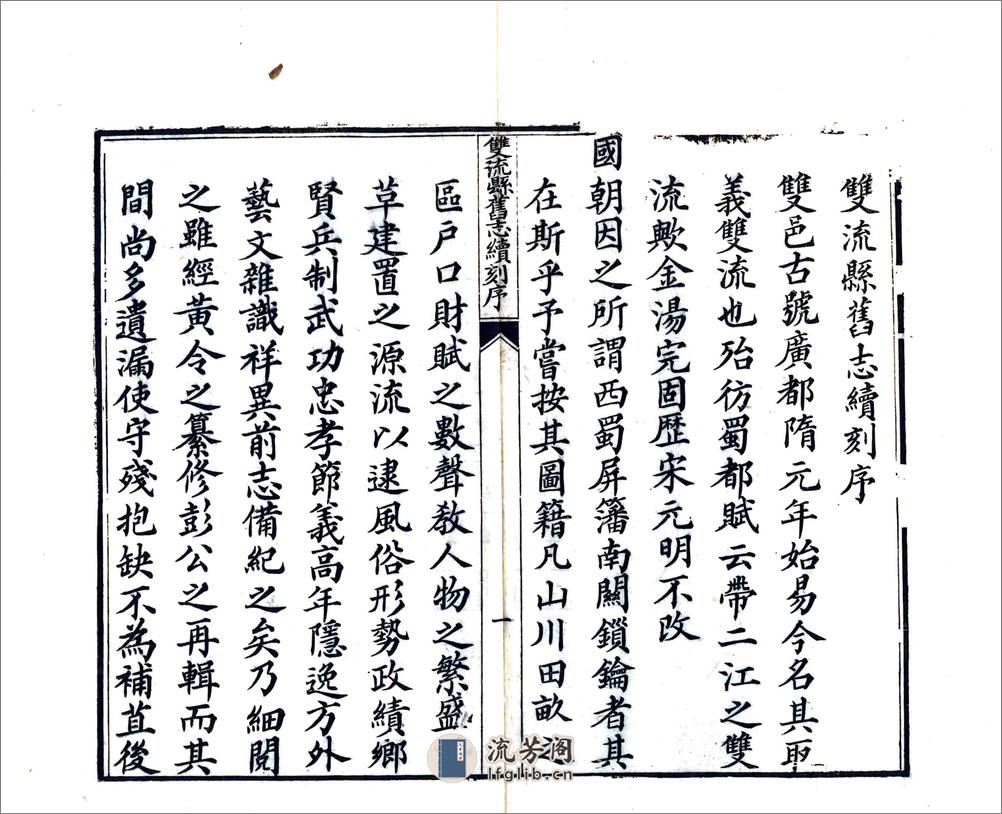 雙流縣舊志續刻序
雙邑古號廣都隋元年始易今名其取
義雙流也殆彷蜀都賦云帶二江之雙
流歟金湯完固歷宋元明不改
國朝因之所謂西蜀屏籓南關鎖鑰者其
在斯乎予嘗按其圖籍凡山川田畝之
雙流縣舊志續刻序
一
區戶口財賦之數聲教人物之繁盛
草建置之源流以逮風俗形勢政績鄉
賢兵制武功忠孝節義高年隱逸方外
藝文雜識祥異前志備紀之矣乃細閱
之雖經黃令之纂修彭公之再輯而其
間尚多遺漏使守殘抱缺不為補苴後
流芳阁
lfglib.cn